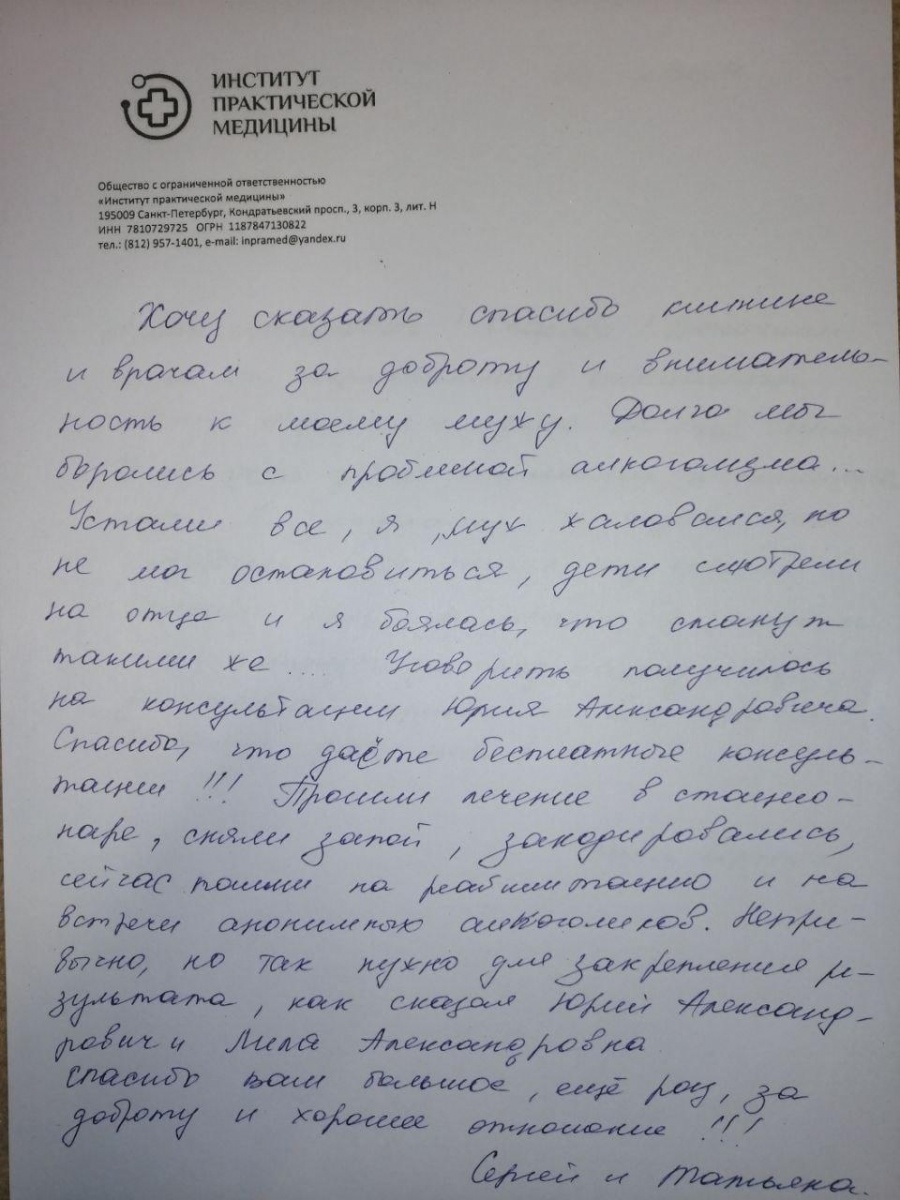 ИНСТИТУТ
ПРАКТИЧЕСКОЙ
МЕДИЦИНЫ
Общество с ограниченной ответственностью
«Институт практической медицины»
195009 Санкт-Петербург, Кондратьевский просп., 3, корп. 3, лит. Н
ИНН 7810729725 ОГРН 1187847130822
тел.: (812) 957-1401, e-mail: inpramed@yandex.ru
Хочу сказать спасибо клинике
и врачам за доброту и вниматель-
ность к моему мужу. Долго мы
боролись с проблемой алкоголизма...
Устали все, я, муж жаловался, но
не мог остановиться, дети смотрели
на отца и я боялась, что станут
такими же.... Уговорить получилось
на консультацию Юрия Александровича.
Спасибо, что даёте бесплатные консуль-
тации!!! Прошли лечение в стацио-
наре, сняли запой, закодировались,
сейчас пошли на реабилитацию и на
встречи анонимных алкоголиков. Непри-
вычно, но так нужно для закрепления ре-
зультата, как сказал Юрий Александ-
рович и Лила Александровна
спасибо вам большое, ещё раз, за
доброту и хорошее отношение!!!
Сергей и Татьяна.